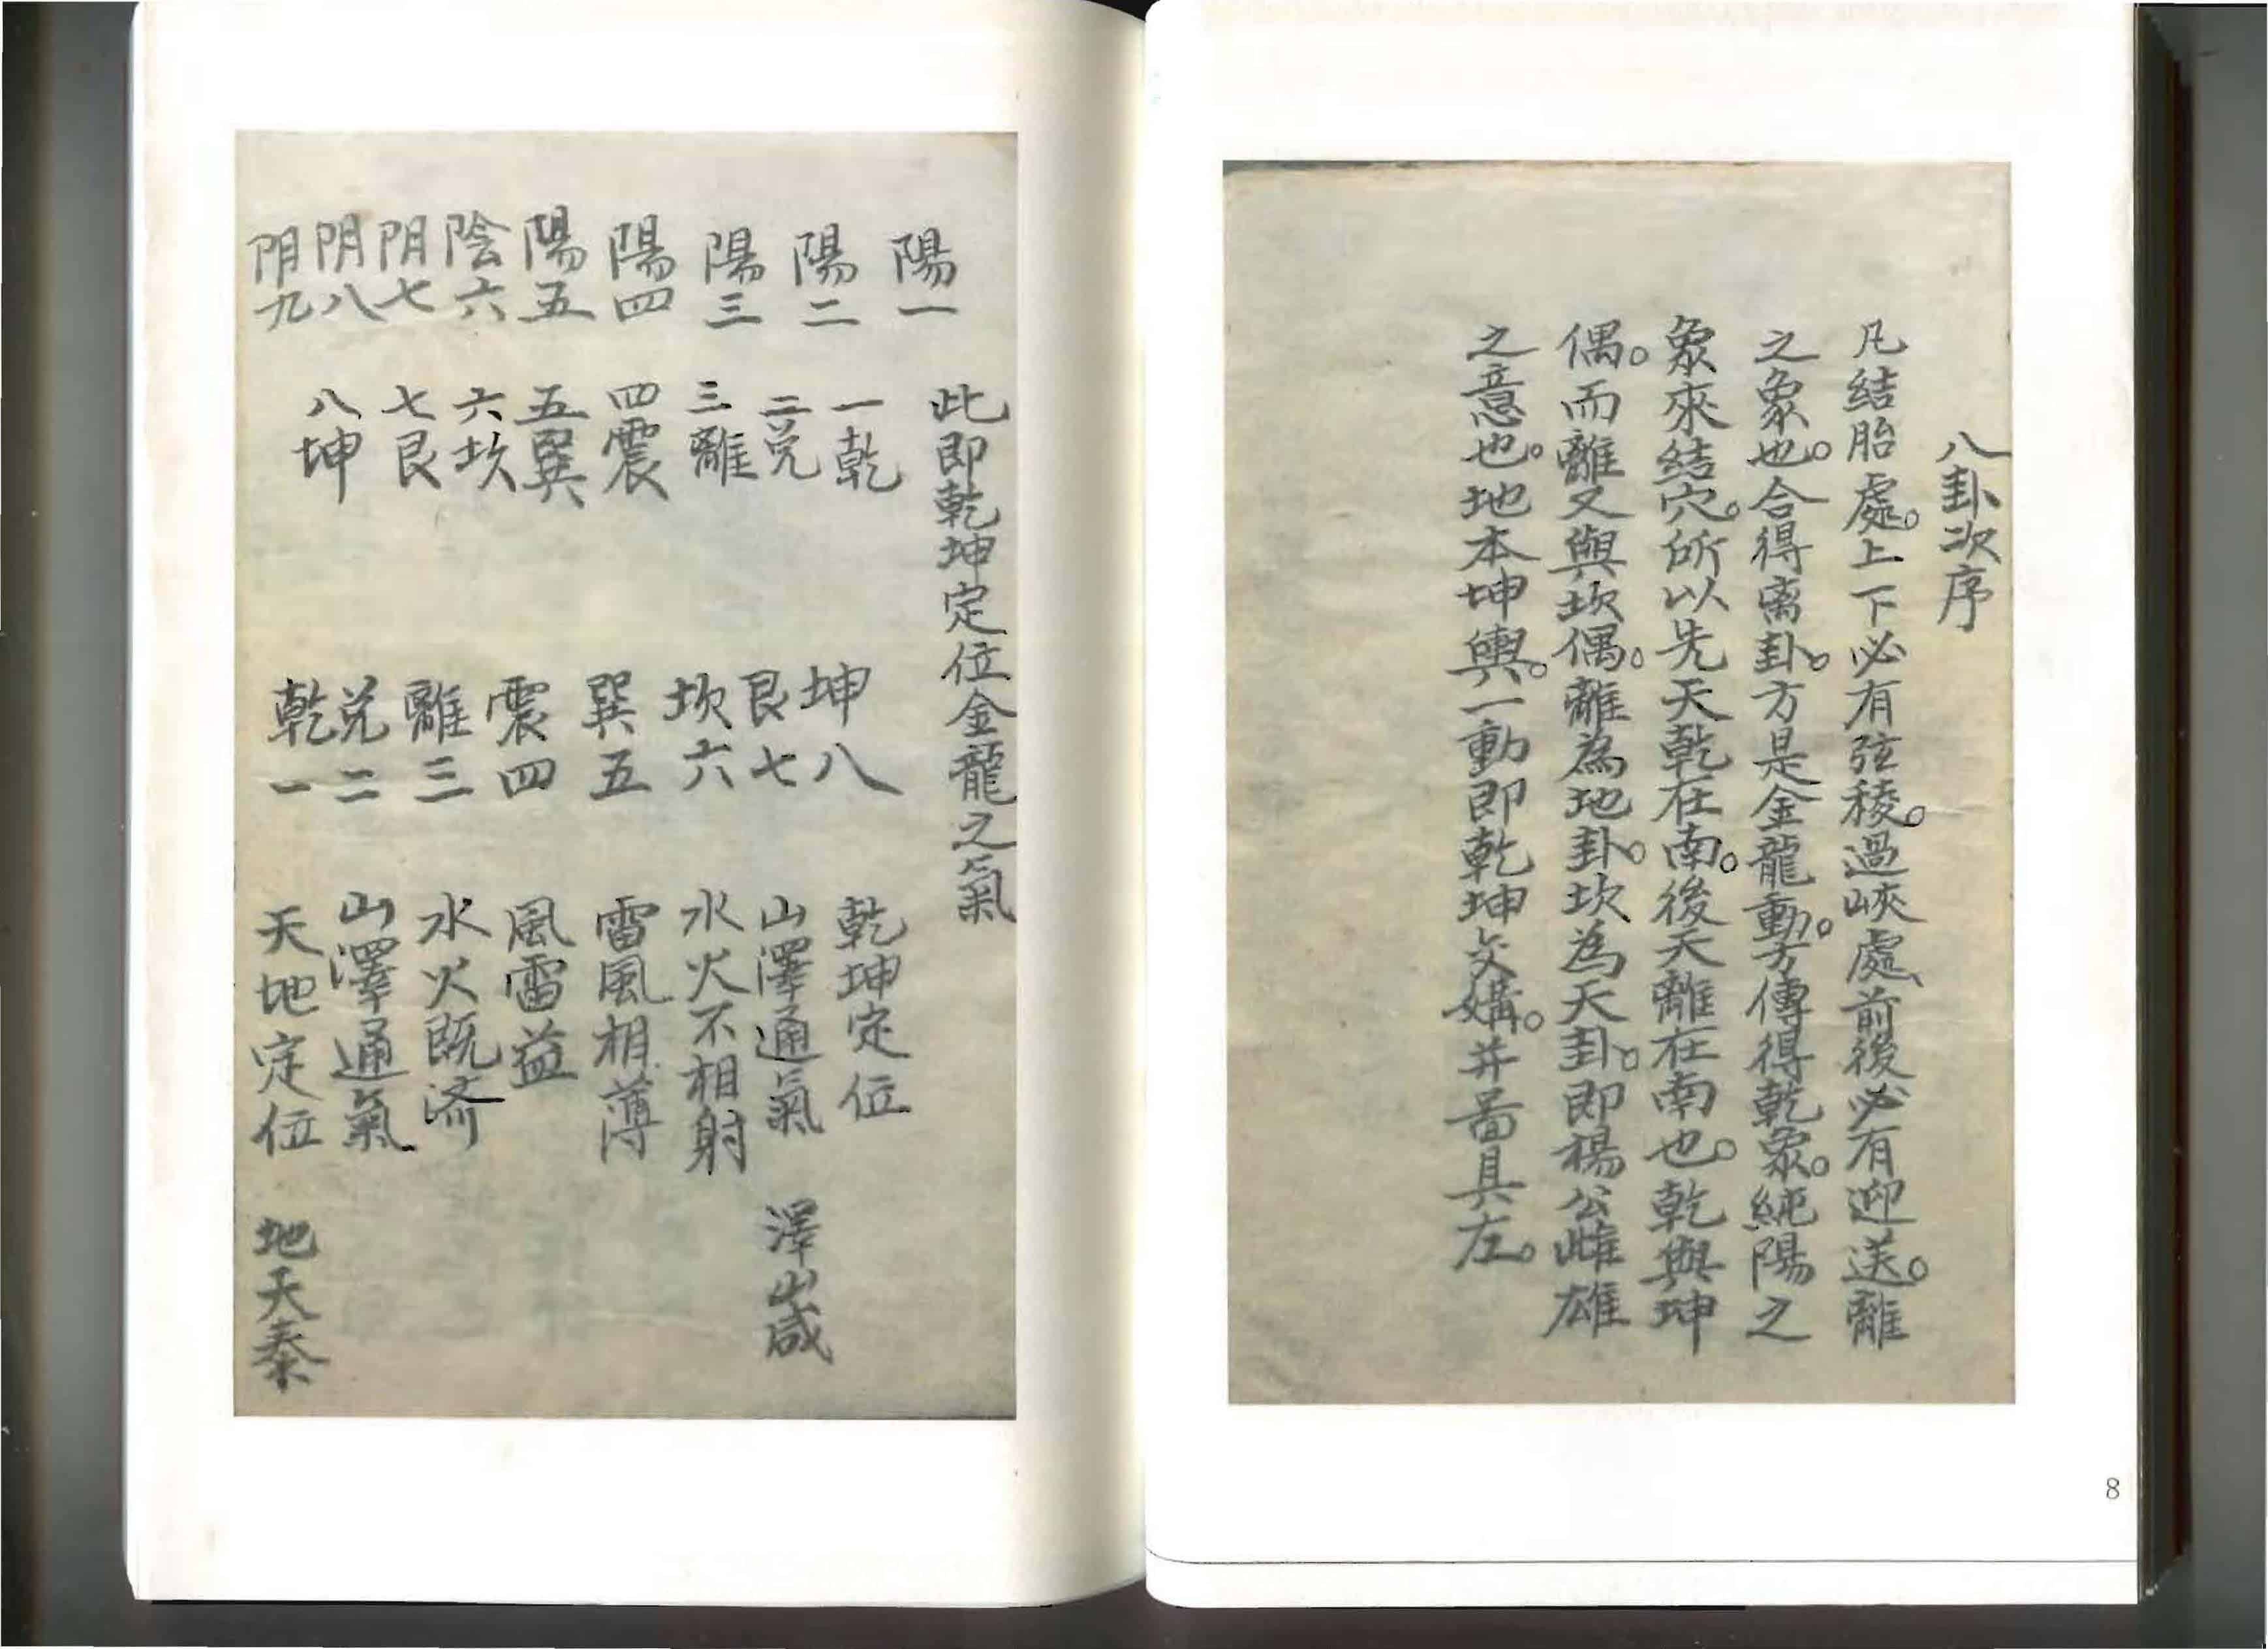 八卦次序
凡結胎處。上下必有弦稜。過峽處、前後必有迎送。離
之象也。合得离卦。方是金龍動。方傳得乾象。純陽之
象來結穴。所以先天乾在南。後天離在南也。乾與坤
偶。而離又與坎偶。離為地卦。坎為天卦。即楊公雌雄
之意也。地本坤輿。一動即乾坤交媾。并啚具左。
8
此即乾坤定位金龍之氣
陽一
陽二
陽三
陽四
陽五
陰六
阴七
阴八
阴九
一乾
二兌
三離
四震
五巽
六坎
七艮
八坤
坤八
艮七
坎六
巽五
震四
離三
兌二
乾一
乾坤定位
山澤通氣 澤山咸
水火不相射
雷風相薄
風雷益
水火既济
山澤通氣
天地定位 地天泰